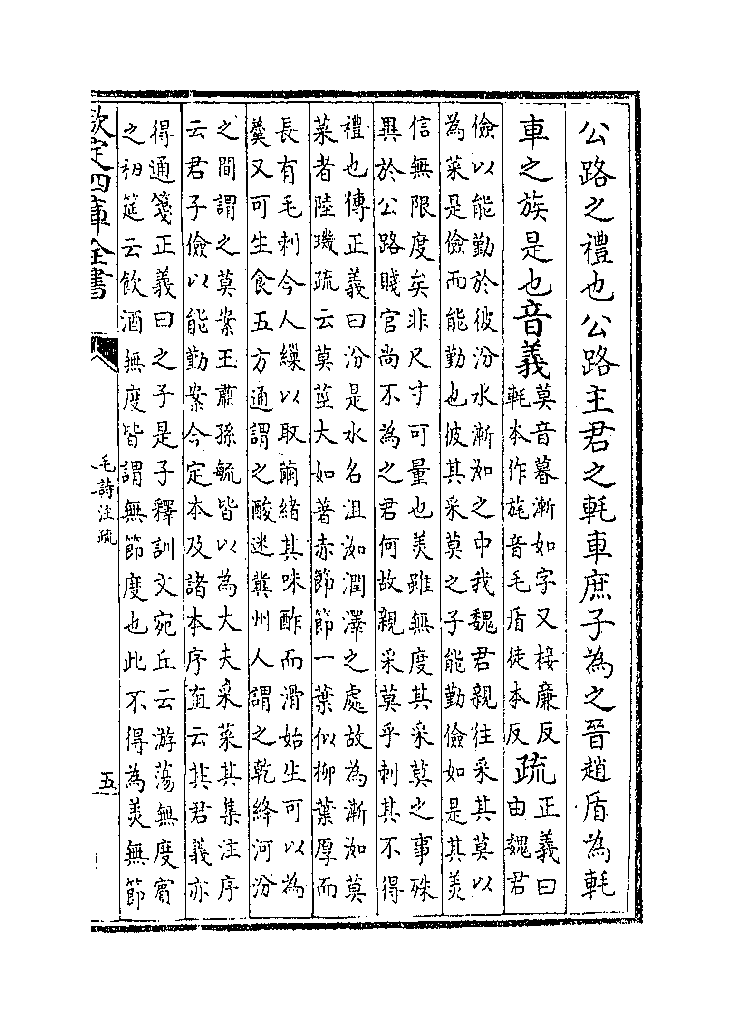 公路之禮也公路主君之軞車庶子為之晉趙盾為軞
車之族是也音義莫音暮漸如字又接廉反
軞本作旄音毛盾徒本反疏正義曰
由魏君
儉以能勤於彼汾水漸洳之中我魏君親往采其莫以
為菜是儉而能勤也彼其采莫之子能勤儉如是其美
信無限度矣非尺寸可量也美雖無度其采莫之事殊
異於公路賤官尚不為之君何故親采莫乎刺其不得
禮也傳正義曰汾是水名沮洳潤澤之處故為漸洳莫
菜者陸璣疏云莫莖大如箸赤節節一葉似柳葉厚而
長有毛刺今人繅以取繭緒其味酢而滑始生可以為
羹又可生食五方通謂之酸迷冀州人謂之乾絳河汾
之間謂之莫案王肅孫毓皆以為大夫采菜其集注序
云君子儉以能勤案今定本及諸本序直云其君義亦
得通箋正義曰之子是子釋訓文宛丘云游蕩無度賔
之初筵云飲酒無度皆謂無節度也此不得為美無節
欽定四庫全書
毛詩注疏
五